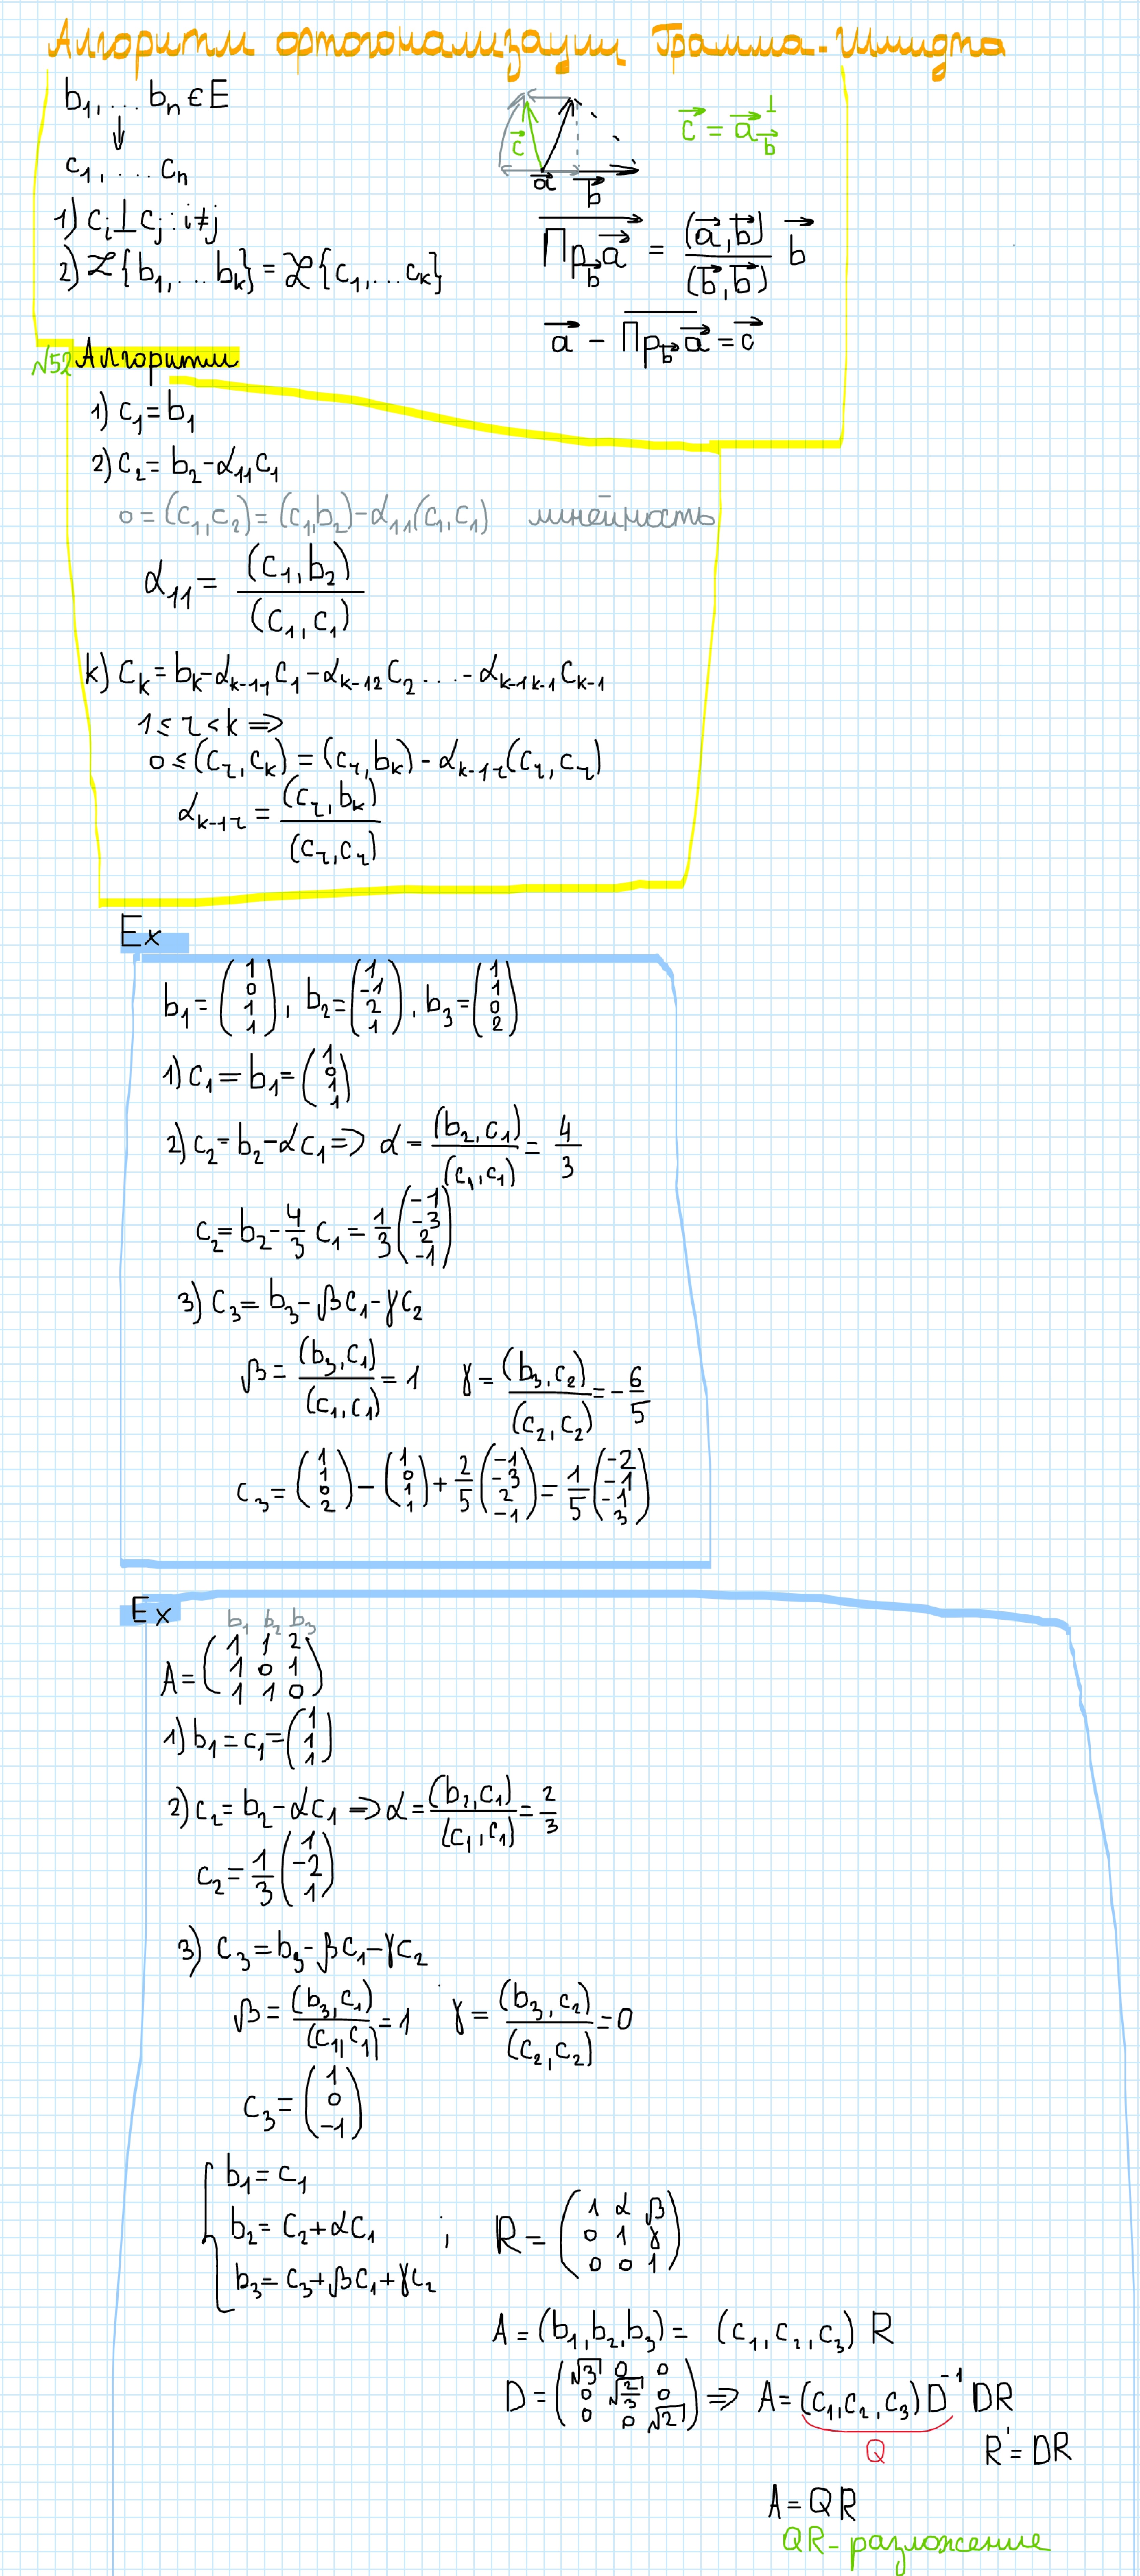 Алгоритм ортогонализации Грамма-Шмидта
b₁, ... bₙ ∈ E
↓
c₁, ... cₙ
1) cᵢ ⊥ cⱼ : i ≠ j
2) ℒ{b₁, ... bₖ} = ℒ{c₁, ... cₖ}
c⃗
a⃗ b⃗
c⃗ = a⃗_b⃗^⊥
Пр_b⃗ a⃗ = (a⃗, b⃗)/(b⃗, b⃗) b⃗
a⃗ - Пр_b⃗ a⃗ = c⃗
№52 Алгоритм
1) c₁ = b₁
2) c₂ = b₂ - α₁₁c₁
0 = (c₁, c₂) = (c₁, b₂) - α₁₁(c₁, c₁) линейность
α₁₁ = (c₁, b₂)/(c₁, c₁)
k) cₖ = bₖ - αₖ₋₁₁c₁ - αₖ₋₁₂c₂ ... - αₖ₋₁ₖ₋₁cₖ₋₁
1 ≤ r < k ⇒
0 ≤ (c_r, cₖ) = (c_r, bₖ) - α_{k-1r}(c_r, c_r)
α_{k-1r} = (c_r, bₖ)/(c_r, c_r)
Ex
b₁ = (1 0 1 1), b₂ = (1 -1 2 1), b₃ = (1 1 0 2)
1) c₁ = b₁ = (1 0 1 1)
2) c₂ = b₂ - αc₁ ⇒ α = (b₂, c₁)/(c₁, c₁) = 4/3
c₂ = b₂ - 4/3 c₁ = 1/3 (-1 -3 2 -1)
3) c₃ = b₃ - βc₁ - γc₂
β = (b₃, c₁)/(c₁, c₁) = 1 γ = (b₃, c₂)/(c₂, c₂) = -6/5
c₃ = (1 1 0 2) - (1 0 1 1) + 2/5 (-1 -3 2 -1) = 1/5 (-2 -1 -1 3)
Ex
b₁ b₂ b₃
A = (1 1 2
1 0 1
1 1 0)
1) b₁ = c₁ = (1 1 1)
2) c₂ = b₂ - αc₁ ⇒ α = (b₂, c₁)/(c₁, c₁) = 2/3
c₂ = 1/3 (1 -2 1)
3) c₃ = b₃ - βc₁ - γc₂
β = (b₃, c₁)/(c₁, c₁) = 1 γ = (b₃, c₂)/(c₂, c₂) = 0
c₃ = (1 0 -1)
b₁ = c₁
b₂ = c₂ + αc₁ ;
b₃ = c₃ + βc₁ + γc₂
R = (1 α β
0 1 γ
0 0 1)
A = (b₁, b₂, b₃) = (c₁, c₂, c₃) R
D = (√3 0 0
0 √(2/3) 0
0 0 √2) ⇒ A = (c₁, c₂, c₃) D⁻¹ DR
Q R' = DR
A = QR
QR-разложение